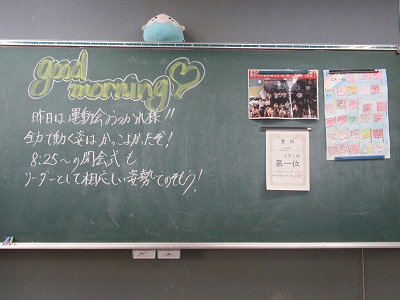 good
morning
昨日は運動会おつかれ様!!
全力で動く姿はかっこよかったぞ!
8:25〜の閉会式も
リーダーとして相応しい姿勢でのぞもう!
賞状
第一位